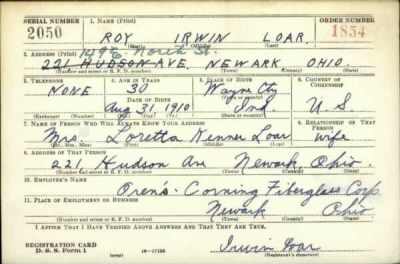 SERIAL NUMBER 1. NAME (Print) ORDER NUMBER
2050 ROY IRWIN LOAR. 1834
(First) (Middle) (Last)
2. ADDRESS (Print) 149½ North St.
221 HUDSON AVE, NEWARK OHIO.
(Number and street or R. F. D. number) (Town) (County) (State)
3. TELEPHONE 4. AGE IN YEARS 5. PLACE OF BIRTH 6. COUNTRY OF CITIZENSHIP
NONE 30 Wayne Cty
DATE OF BIRTH (Town or county)
Aug 31 1910 Ind. U. S.
(Mo.) (Day) (Yr.) (State or country)
7. NAME OF PERSON WHO WILL ALWAYS KNOW YOUR ADDRESS 8. RELATIONSHIP OF THAT PERSON
Mrs. Loretta Kenner Loar wife
(Mr., Mrs., Miss) (First) (Middle) (Last)
9. ADDRESS OF THAT PERSON
221 Hudson Ave Newark, Ohio.
(Number and street or R. F. D. number) (Town) (County) (State)
10. EMPLOYER'S NAME
Oren's-Corning Fiberglass Corp.
11. PLACE OF EMPLOYMENT OR BUSINESS
Newark Ohio
(Number and street or R. F. D. number) (Town) (County) (State)
I AFFIRM THAT I HAVE VERIFIED ABOVE ANSWERS AND THAT THEY ARE TRUE.
REGISTRATION CARD
D. S. S. Form 1 16—17105 Irwin Loar
(Registrant's signature)